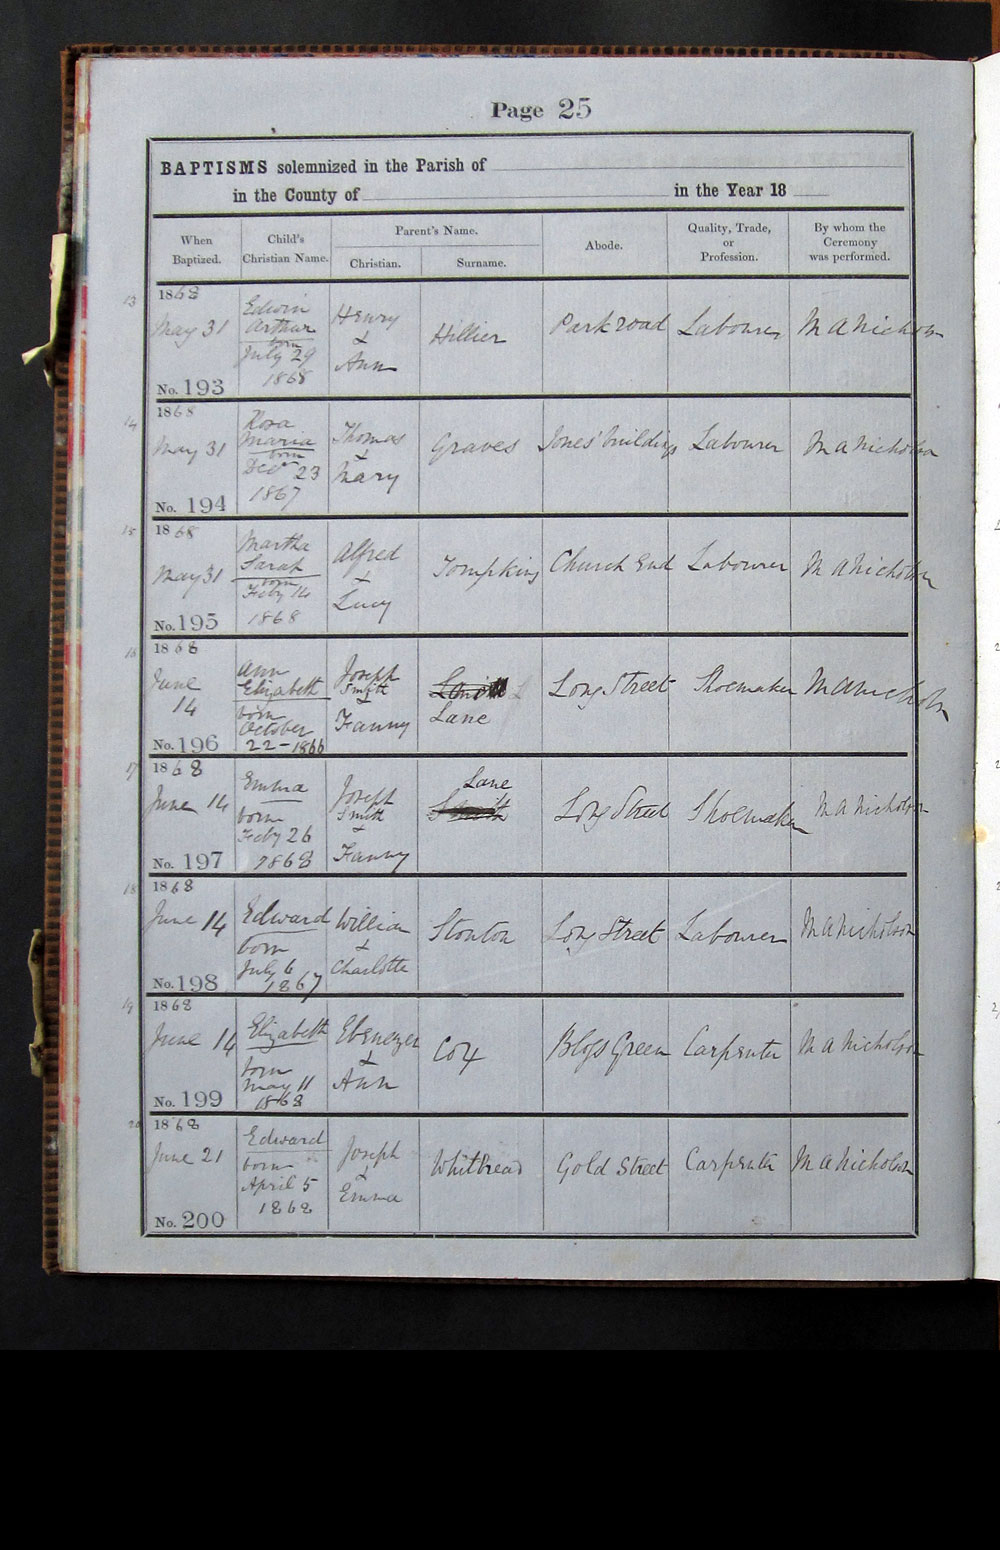 Page 25
BAPTISMS solemnized in the Parish of
in the County of in the Year 18
When Baptized.
Child's Christian Name.
Parent's Name.
Christian.
Surname.
Abode.
Quality, Trade, or Profession.
By whom the Ceremony was performed.
13
1868
May 31
No. 193
Edwin
Arthur
born
July 29
1868
Henry
&
Ann
Hillier
Park road
Labourer
M A Nicholson
14
1868
May 31
No. 194
Rosa
Maria
born
Decr 23
1867
Thomas
&
Mary
Graves
Jones' buildings
Labourer
M A Nicholson
15
1868
May 31
No. 195
Martha
Sarah
born
Feby 14
1868
Alfred
&
Lucy
Tompkins
Church End
Labourer
M A Nicholson
16
1868
June
14
No. 196
Ann
Elizabeth
born
October
22 - 1866
Joseph
Smith
&
Fanny
Lane
Long Street
Shoemaker
M A Nicholson
17
1868
June 14
No. 197
Emma
born
Feby 26
1868
Joseph
Smith
&
Fanny
Lane
Smith
Long Street
Shoemaker
M A Nicholson
18
1868
June 14
No. 198
Edward
born
July 6
1867
William
&
Charlotte
Stonton
Long Street
Labourer
M A Nicholson
19
1868
June 14
No. 199
Elizabeth
born
May 11
1868
Ebenezer
&
Ann
Cox
Green
Carpenter
M A Nicholson
20
1868
June 21
No. 200
Edward
born
April 5
1868
Joseph
&
Emma
Whitbread
Gold Street
Carpenter
M A Nicholson